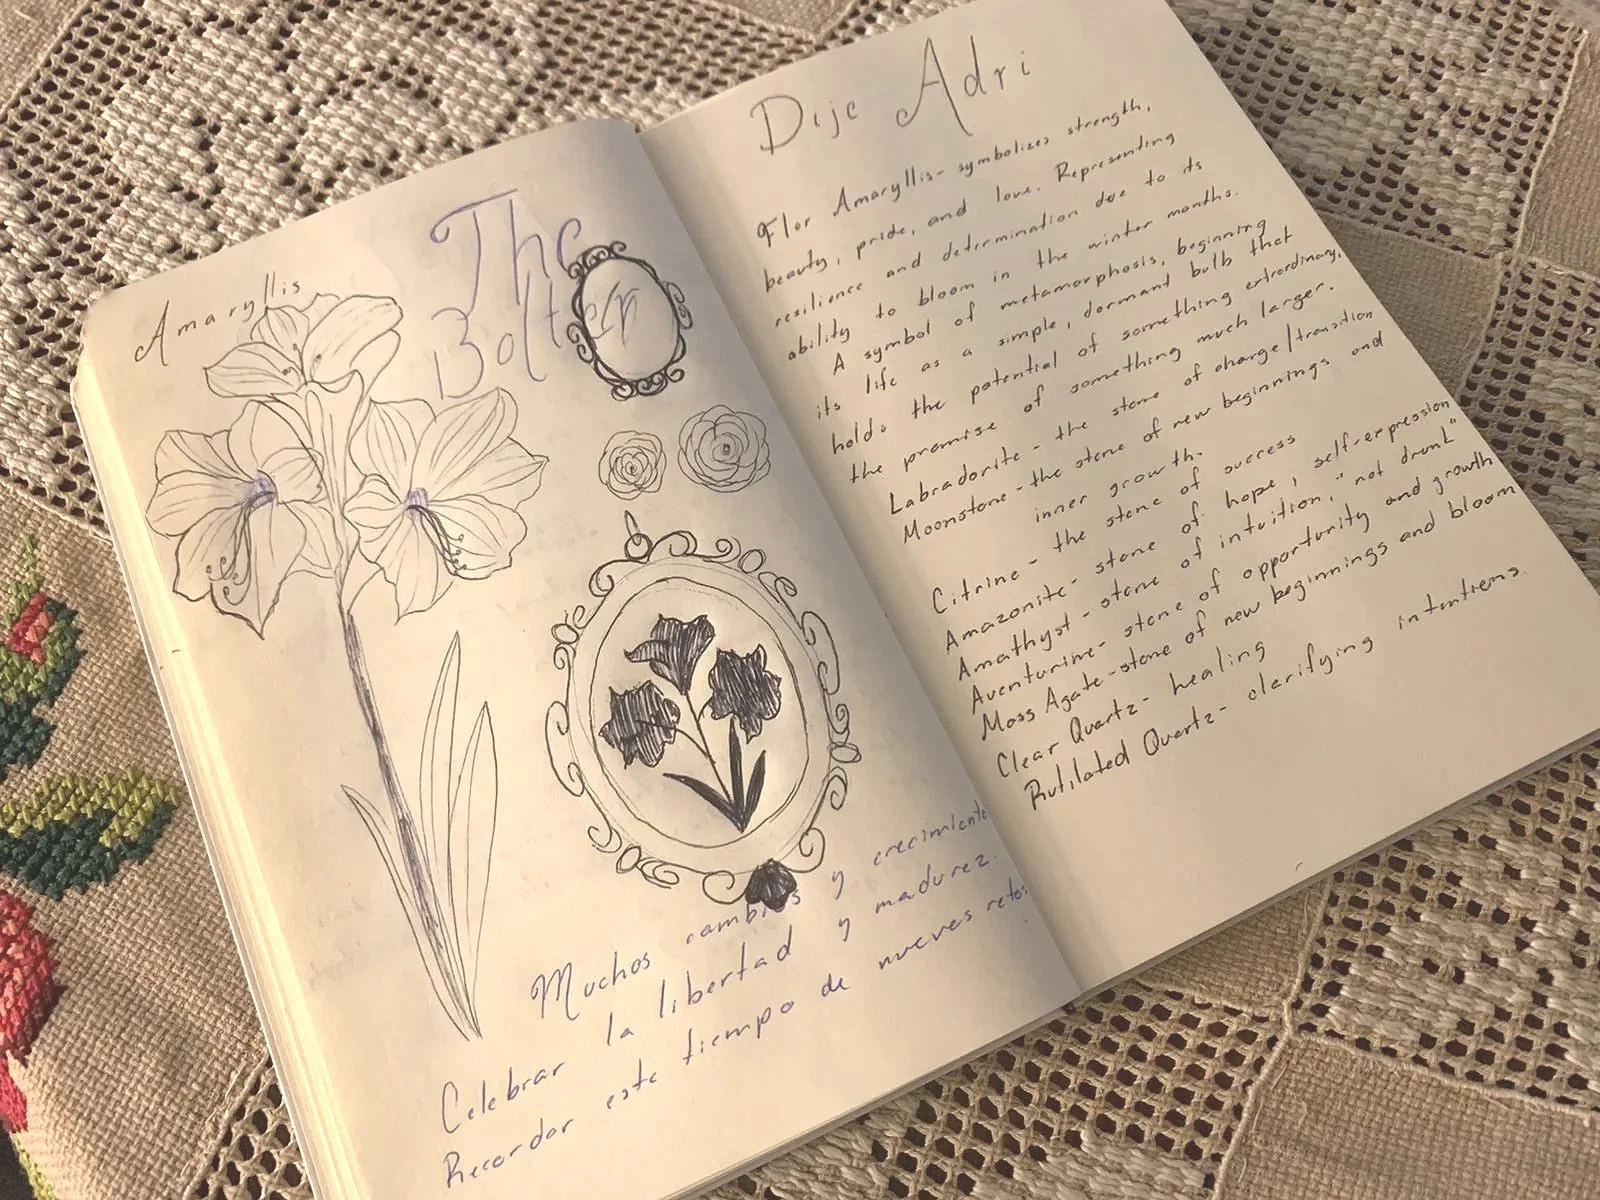 Amaryllis
The
Bolter
Muchos cambios y crecimiento
Celebrar la libertad y madurez.
Recordar este tiempo de nuevos retos
Dije Adri
Flor Amaryllis- symbolizes strength,
beauty, pride, and love. Representing
resilience and determination due to its
ability to bloom in the winter months.
A symbol of metamorphosis, beginning
its life as a simple, dormant bulb that
holds the potential of something extraordinary,
the promise of something much larger.
Labradorite - the stone of change/transition
Moonstone - the stone of new beginnings and
inner growth.
Citrine - the stone of success
Amazonite - stone of hope, self-expression
Amathyst - stone of intuition, "not drunk"
Aventurine - stone of opportunity and growth
Moss Agate - stone of new beginnings and bloom
Clear Quartz - healing
Rutilated Quartz - clarifying intentions.